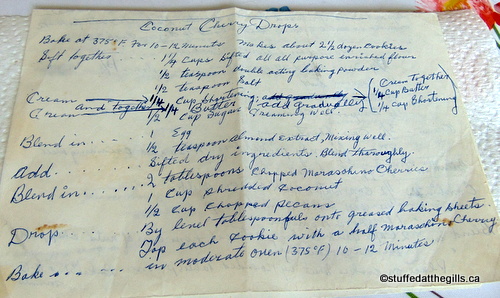 Coconut Cherry Drops
Bake at 375°F. For 10-12 Minutes Makes about 2½ dozen cookies
Sift together 1¼ cups sifted all purpose enriched flour
½ teaspoon double acting baking powder
½ teaspoon Salt
Cream 1/4 cup shortening, 1/4 Butter (Cream Together
Cream and together ½ Cup Sugar add gradually 1/4 cup Butter
Creaming well 1/4 cup Shortening)
Blend in.... 1 Egg
½ teaspoon almond extract, Mixing well.
Add........ Sifted dry ingredients. Blend thoroughly.
Blend in....... 2 tablespoons Chopped Maraschino Cherries
1 Cup shredded Coconut
½ Cup Chopped Pecans
Drop..... By level tablespoonfuls onto greased baking sheets
Top each Cookie with a half Maraschino Cherry
Bake...... in moderate oven (375°F) 10-12 Minutes
©stuffedatthegills.ca